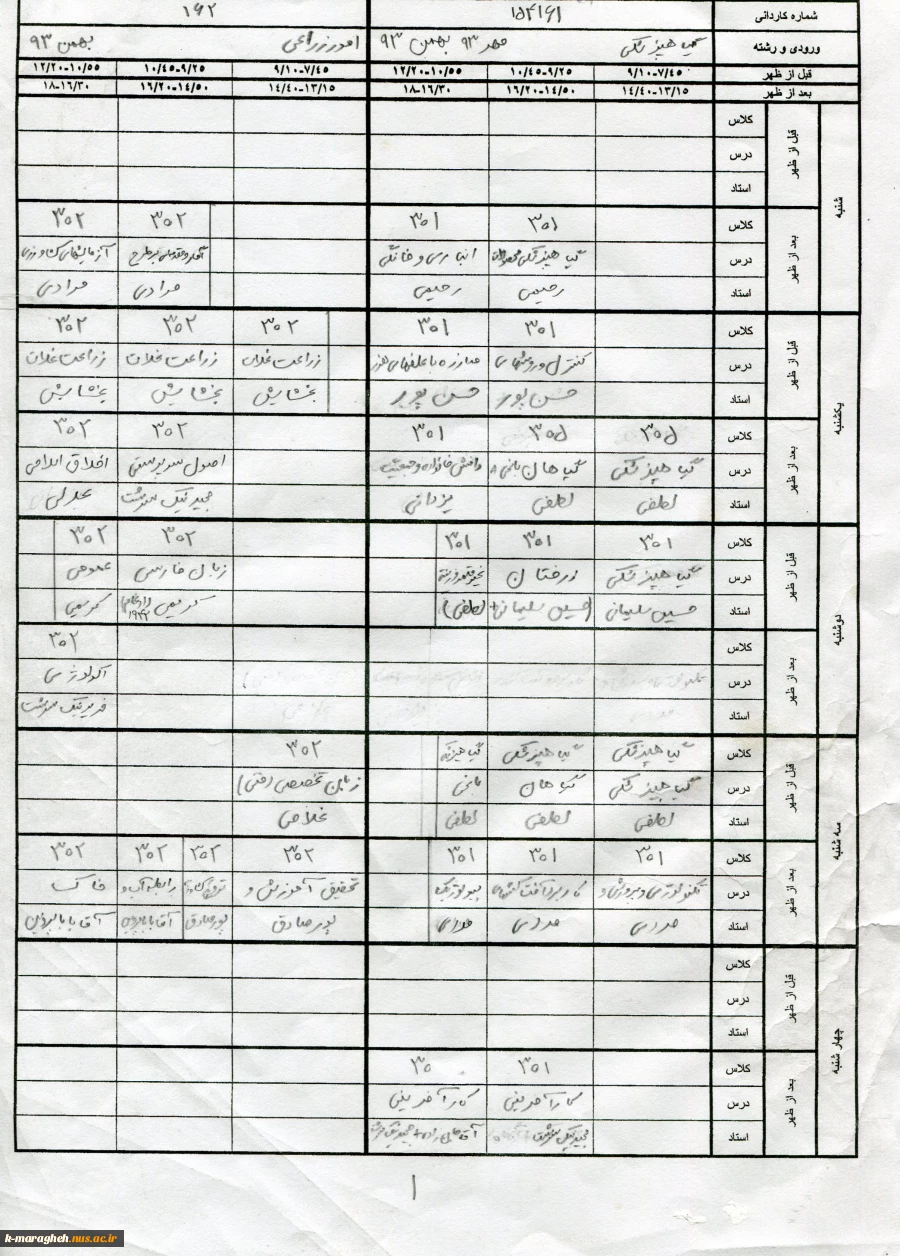 شماره کاردانی ۱۵۴۱۶۱ ۱۶۲
ورودی و رشته گیاهپزشکی مهر ۹۳ بهمن ۹۳ امور زراعی بهمن ۹۳
قبل از ظهر ۷/۴۵-۹/۱۰ ۹/۲۵-۱۰/۴۵ ۱۰/۵۵-۱۲/۲۰ ۷/۴۵-۹/۱۰ ۹/۲۵-۱۰/۴۵ ۱۰/۵۵-۱۲/۲۰
بعد از ظهر ۱۳/۱۵-۱۴/۴۰ ۱۴/۵۰-۱۶/۲۰ ۱۶/۳۰-۱۸ ۱۳/۱۵-۱۴/۴۰ ۱۴/۵۰-۱۶/۲۰ ۱۶/۳۰-۱۸
شنبه
قبل از ظهر
کلاس
درس
استاد
بعد از ظهر
کلاس ۳۰۱ ۳۰۱ ۳۰۲ ۳۰۲
درس انباری و خانگی آزمایشهای کشاورزی
استاد رحیمی رحیمی مرادی مرادی
یکشنبه
قبل از ظهر
کلاس ۳۰۱ ۳۰۱ ۳۰۲ ۳۰۲ ۳۰۲
درس مبارزه با علفهای هرز زراعت غلات زراعت غلات زراعت غلات
استاد حسن پور حسن پور بخشایش بخشایش بخشایش
بعد از ظهر
کلاس ۳۰۵ ۳۰۵ ۳۰۱ ۳۰۲ ۳۰۲
درس گیاهپزشکی دانش خانواده و جمعیت اصول سرپرستی اخلاق اسلامی
استاد لطفی لطفی یزدانی مجید نیک سرشت
دوشنبه
قبل از ظهر
کلاس ۳۰۱ ۳۰۱ ۳۰۱ ۳۰۲ ۳۰۲
درس گیاهپزشکی درختان زبان فارسی عمومی
استاد حسین سلیمانی (حسین سلیمانی+ لطفی) کریمی کریمی
بعد از ظهر
کلاس ۳۰۲
درس اکولوژی
استاد فریبر نیک سرشت
سه شنبه
قبل از ظهر
کلاس گیاهپزشکی گیاهپزشکی ۳۰۲
درس گیاهپزشکی گیاهان زبان تخصصی (فنی)
استاد لطفی لطفی لطفی غلامی
بعد از ظهر
کلاس ۳۰۱ ۳۰۱ ۳۰۱ ۳۰۲ ۳۰۲ ۳۰۲ ۳۰۲
درس تکنولوژی کاربرد آفت کشهای بیولوژیک تحقیق آموزش و رابطه آب و خاک
استاد پورصادق پورصادق آقابابا پروین آقابابا پروین
چهار شنبه
قبل از ظهر
کلاس
درس
استاد
بعد از ظهر
کلاس ۳۰۱ ۳۰
درس کارآفرینی کارآفرینی
استاد مجید نیک سرشت
۱
k-maragheh.nus.ac.ir